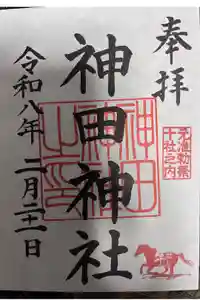 奉拝
元准勅祭
十社之内
神田神社
令和八年二月二十一日